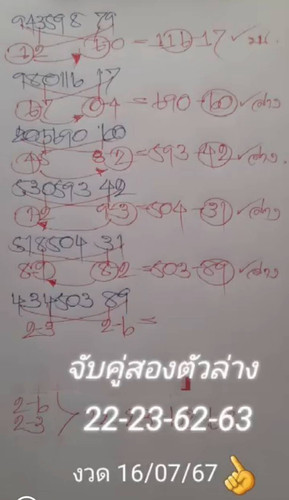 943598 79
12 60 = 111-17 ✓ บน
980116 17
67 04 = 690-60 ✓ ล่าง
205690 60
45 32 = 593-42 ✓ ล่าง
530593 42
12 93 = 504-31 ✓ ล่าง
518504 31
89 82 = 503-89 ✓ ล่าง
434503 89
2-3 2-6 =
จับคู่สองตัวล่าง
2-6
2-3
22-23-62-63
งวด 16/07/67